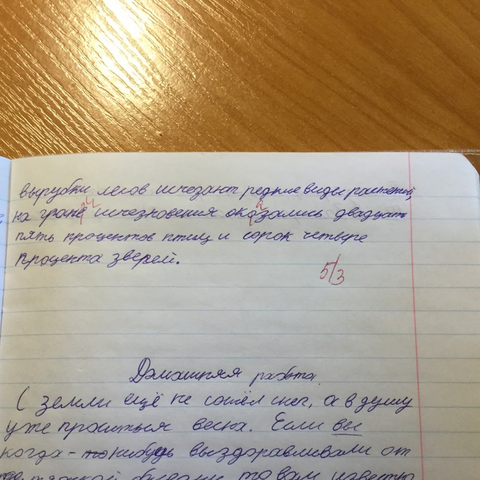 вырубки лесов исчезают редкие виды растений,
на гране исчезновения оказались двадцать
пять процентов птиц и сорок четыре
процента зверей.
5/3
Домашняя работа.
С земли ещё не сошёл снег, а в душу
уже проситься весна. Если вы
когда-то нибудь выздоравливали от
то вам известно